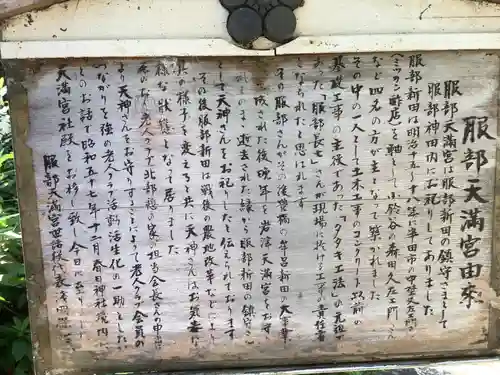 服部天満宮由来
服部天満宮は服部新田の鎮守さまとして
服部神田内にお祀りしてありました
服部新田は明治十五、十八年に半田市の中埜又左エ門
(ミツカン酢店)を軸として小鈴谷の森田久左エ門さん
など四名の方が主となって築かれました
その中の一人として土木工事のコンクリト以前の
基礎工事の主役であった「タタキ工法」の元祖で
あった「服部長七」さんが現場に於ける工事の責任者
となられたと思はれます
その服部さんがその後豊橋の牟呂新田の大事業
完成された後晩年を岩津天満宮をお守
しそのまゝ逝去された縁から服部新田の鎮守さま
として天神さんをお祀りしたと伝えられております
その後服部新田は戦後の農地改革などにより
其の様子を変えると共に天神さんはお気毒な
様な状態となって居りました
お老人クラブ北部穏の家の担当会長さんの申出に
より天神さんをお守りすることによって老人クラブ会員の
つながりを強め老人クラブ活動活性化の一助としたか
とのお話で昭和五十七年十二月春日神社境内に
天満宮社殿をお移しゝ今日に至り
服部天満宮世話役代表 浅岡